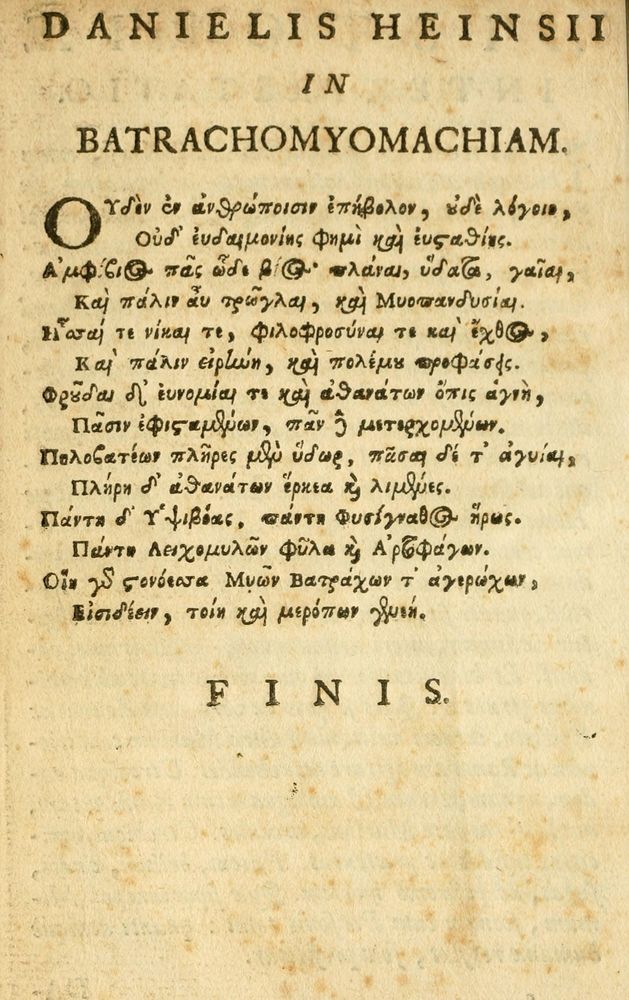 DANIELIS HEINSII
IN
BATRACHOMYOMACHIAM.
Οὐδὲν ἐν ἀνθρώποισιν ἐπήβολον, οὐδὲ λόγοιο,
Οὐδ' ἐυδαιμονίης φημὶ καὶ ἐυσταθίης.
Ἀμφίβιος πᾶς ὧδε βίος· πλάναι, ὕδατα, γαῖαι,
Καὶ πάλιν αὖ τρῶγλαι, καὶ Μυοπανδυσίαι.
Ἧσσαί τε νίκαι τε, φιλοφροσύναι τε καὶ ἔχθος,
Καὶ πάλιν εἰρήνη, καὶ πολέμου προφάσεις.
Φροῦδαι δ' ἐυνομίαι τε καὶ ἀθανάτων ὄπις ἁγνὴ,
Πᾶσιν ἐφισταμένων, πᾶν δὲ μετερχομένων.
Πηλοβατέων πλῆρες μὲν ὕδωρ, πᾶσαι δέ τ' ἀγυίαι,
Πλήρη δ' ἀθανάτων ἕρκεα καὶ λιμένες.
Πάντη δ' Ὑψιβόας, πάντη Φυσίγναθος ἥρως.
Πάντη Λειχομυλῶν φῦλα καὶ Ἀρτοφάγων.
Οἵη γὰρ στονόεσσα Μυῶν Βατράχων τ' ἀγερώχων,
Εἰσιδέειν, τοίη καὶ μερόπων γενεή.
FINIS.